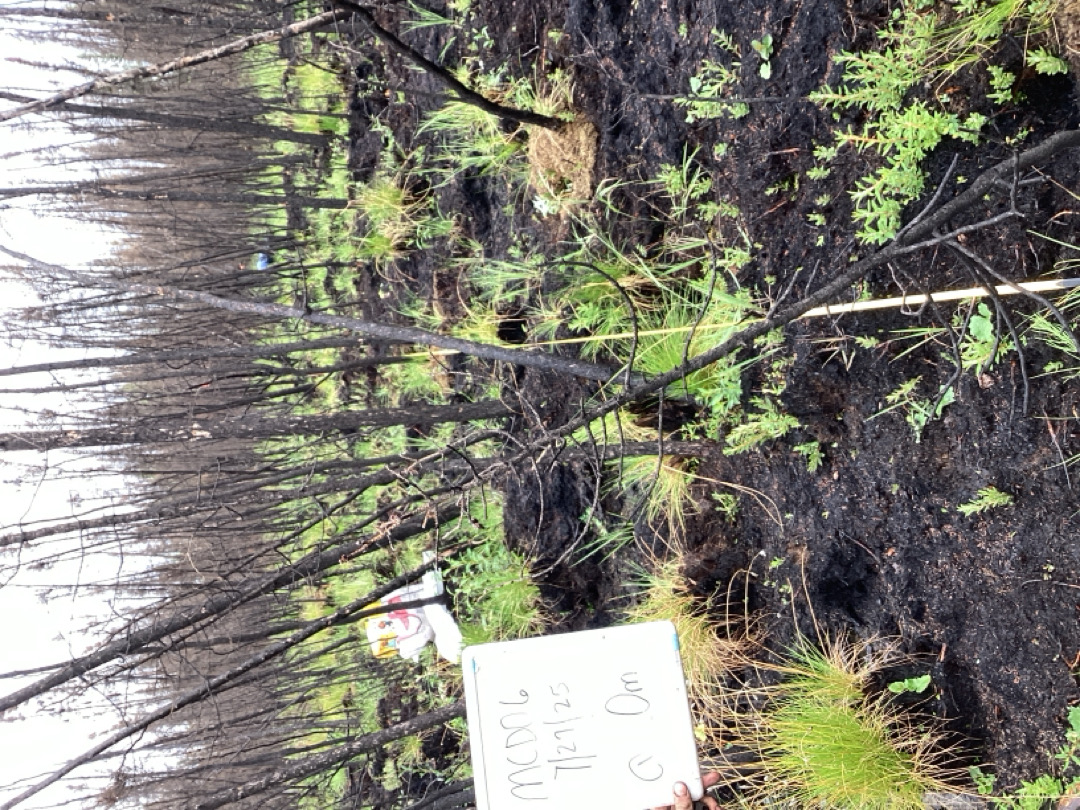 MCDN6
7/27/25
@ 0m